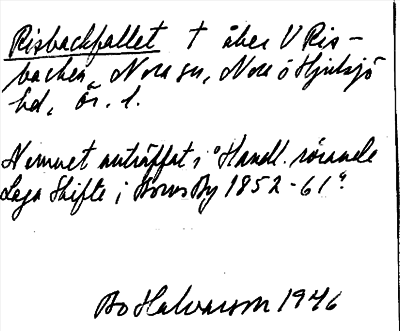 Risbackfallet † åker V Ris-
backen, Nora sn, Nora ö Hjulsjö
hd, Ör. l.
Namnet anträffat i "Handl. rörande
Laga Skifte i Nora By 1852-61".
Bo Halvarson 1946